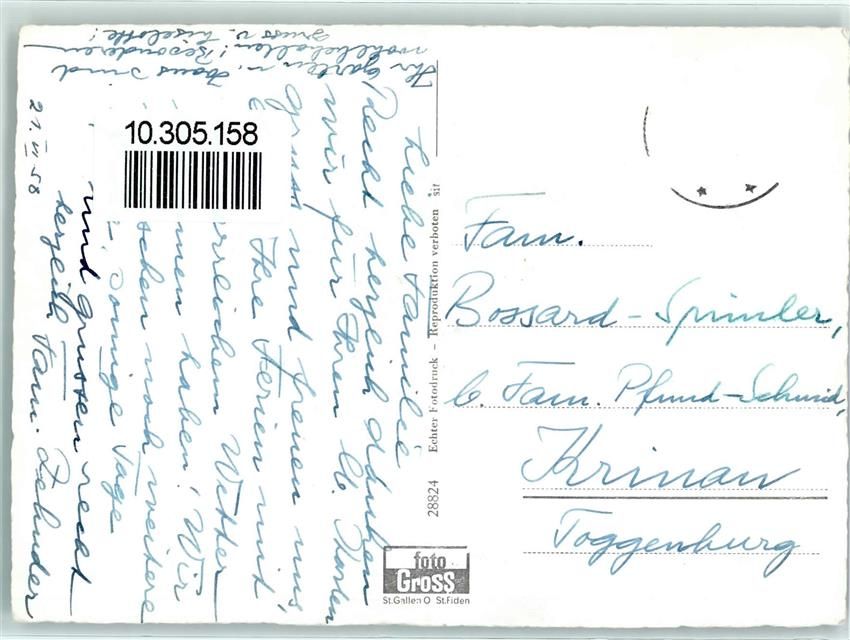 21. VI 58
Liebe Familie
Recht herzlich danken
wir für Ihren lb. Karten
gruss und freuen uns
Ihre Ferien mit
rrlichem Wetter
men haben! Wir
schen noch weitere
sonnige Tage
und grüssen recht
herzlich Fam. Zehnder
Ihr Garten u. Haus sind
wohlbehalten! Besonderen
Gruss v. Liselotte!
10.305.158
28824 Echter Fotodruck – Reproduktion verboten
foto
GROSS
St.Gallen O St.Fiden
Fam.
Bossard - Sprinler,
b. Fam. Pfund-Schmid,
Krinau
Toggenburg